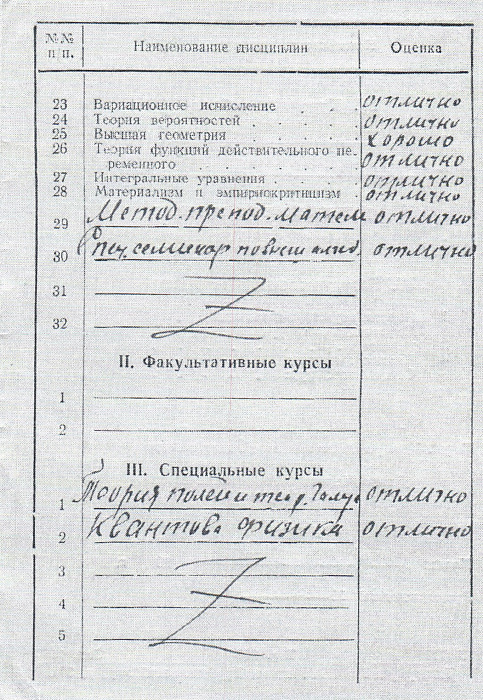 №№ п/п. Наименование дисциплин Оценка
23 Вариационное исчисление . . . отлично
24 Теория вероятностей . . . . . отлично
25 Высшая геометрия . . . . . хорошо
26 Теория функций действительного пе-
ременного . . . . . . отлично
27 Интегральные уравнения . . . отлично
28 Материализм и эмпириокритицизм отлично
29 Метод. препод. матем отлично
30 семинар по высш отлично
31
32
II. Факультативные курсы
1
2
III. Специальные курсы
1 Теория полей и теор. Галуа отлично
2 Квантова физика отлично
3
4
5